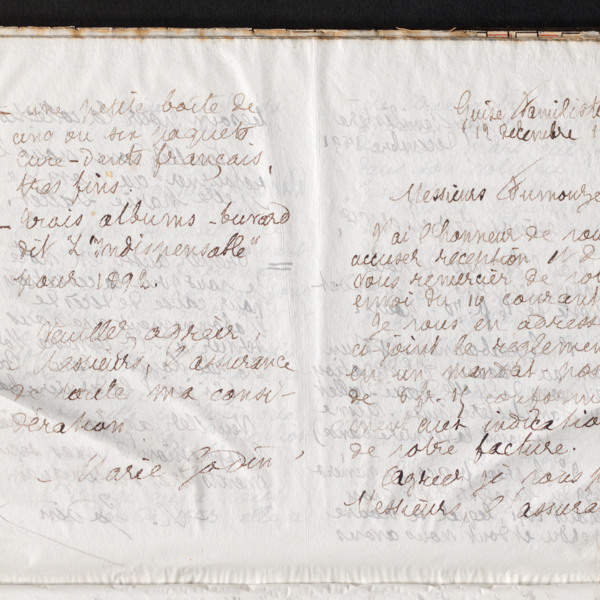 une petite boîte de
cinq ou six paquets
cure-dents français,
très fins.
trois albums-buvard
dit L'"Indispensable"
pour 1892.
Veuillez agréer,
Messieurs, l'assurance
de toute ma consi-
dération
Marie
Guise Familistè
19 décembre 1
Messieurs
J'ai l'honneur de vous
accuser réception et d
vous remercier de vot
envoi du 14 courant
Je vous en adress
ci joint le règlemen
en un mandat pos
de 8 fr. 15 conformé
ment aux indication
de votre facture.
Agréer je vous p
Messieurs l'assura